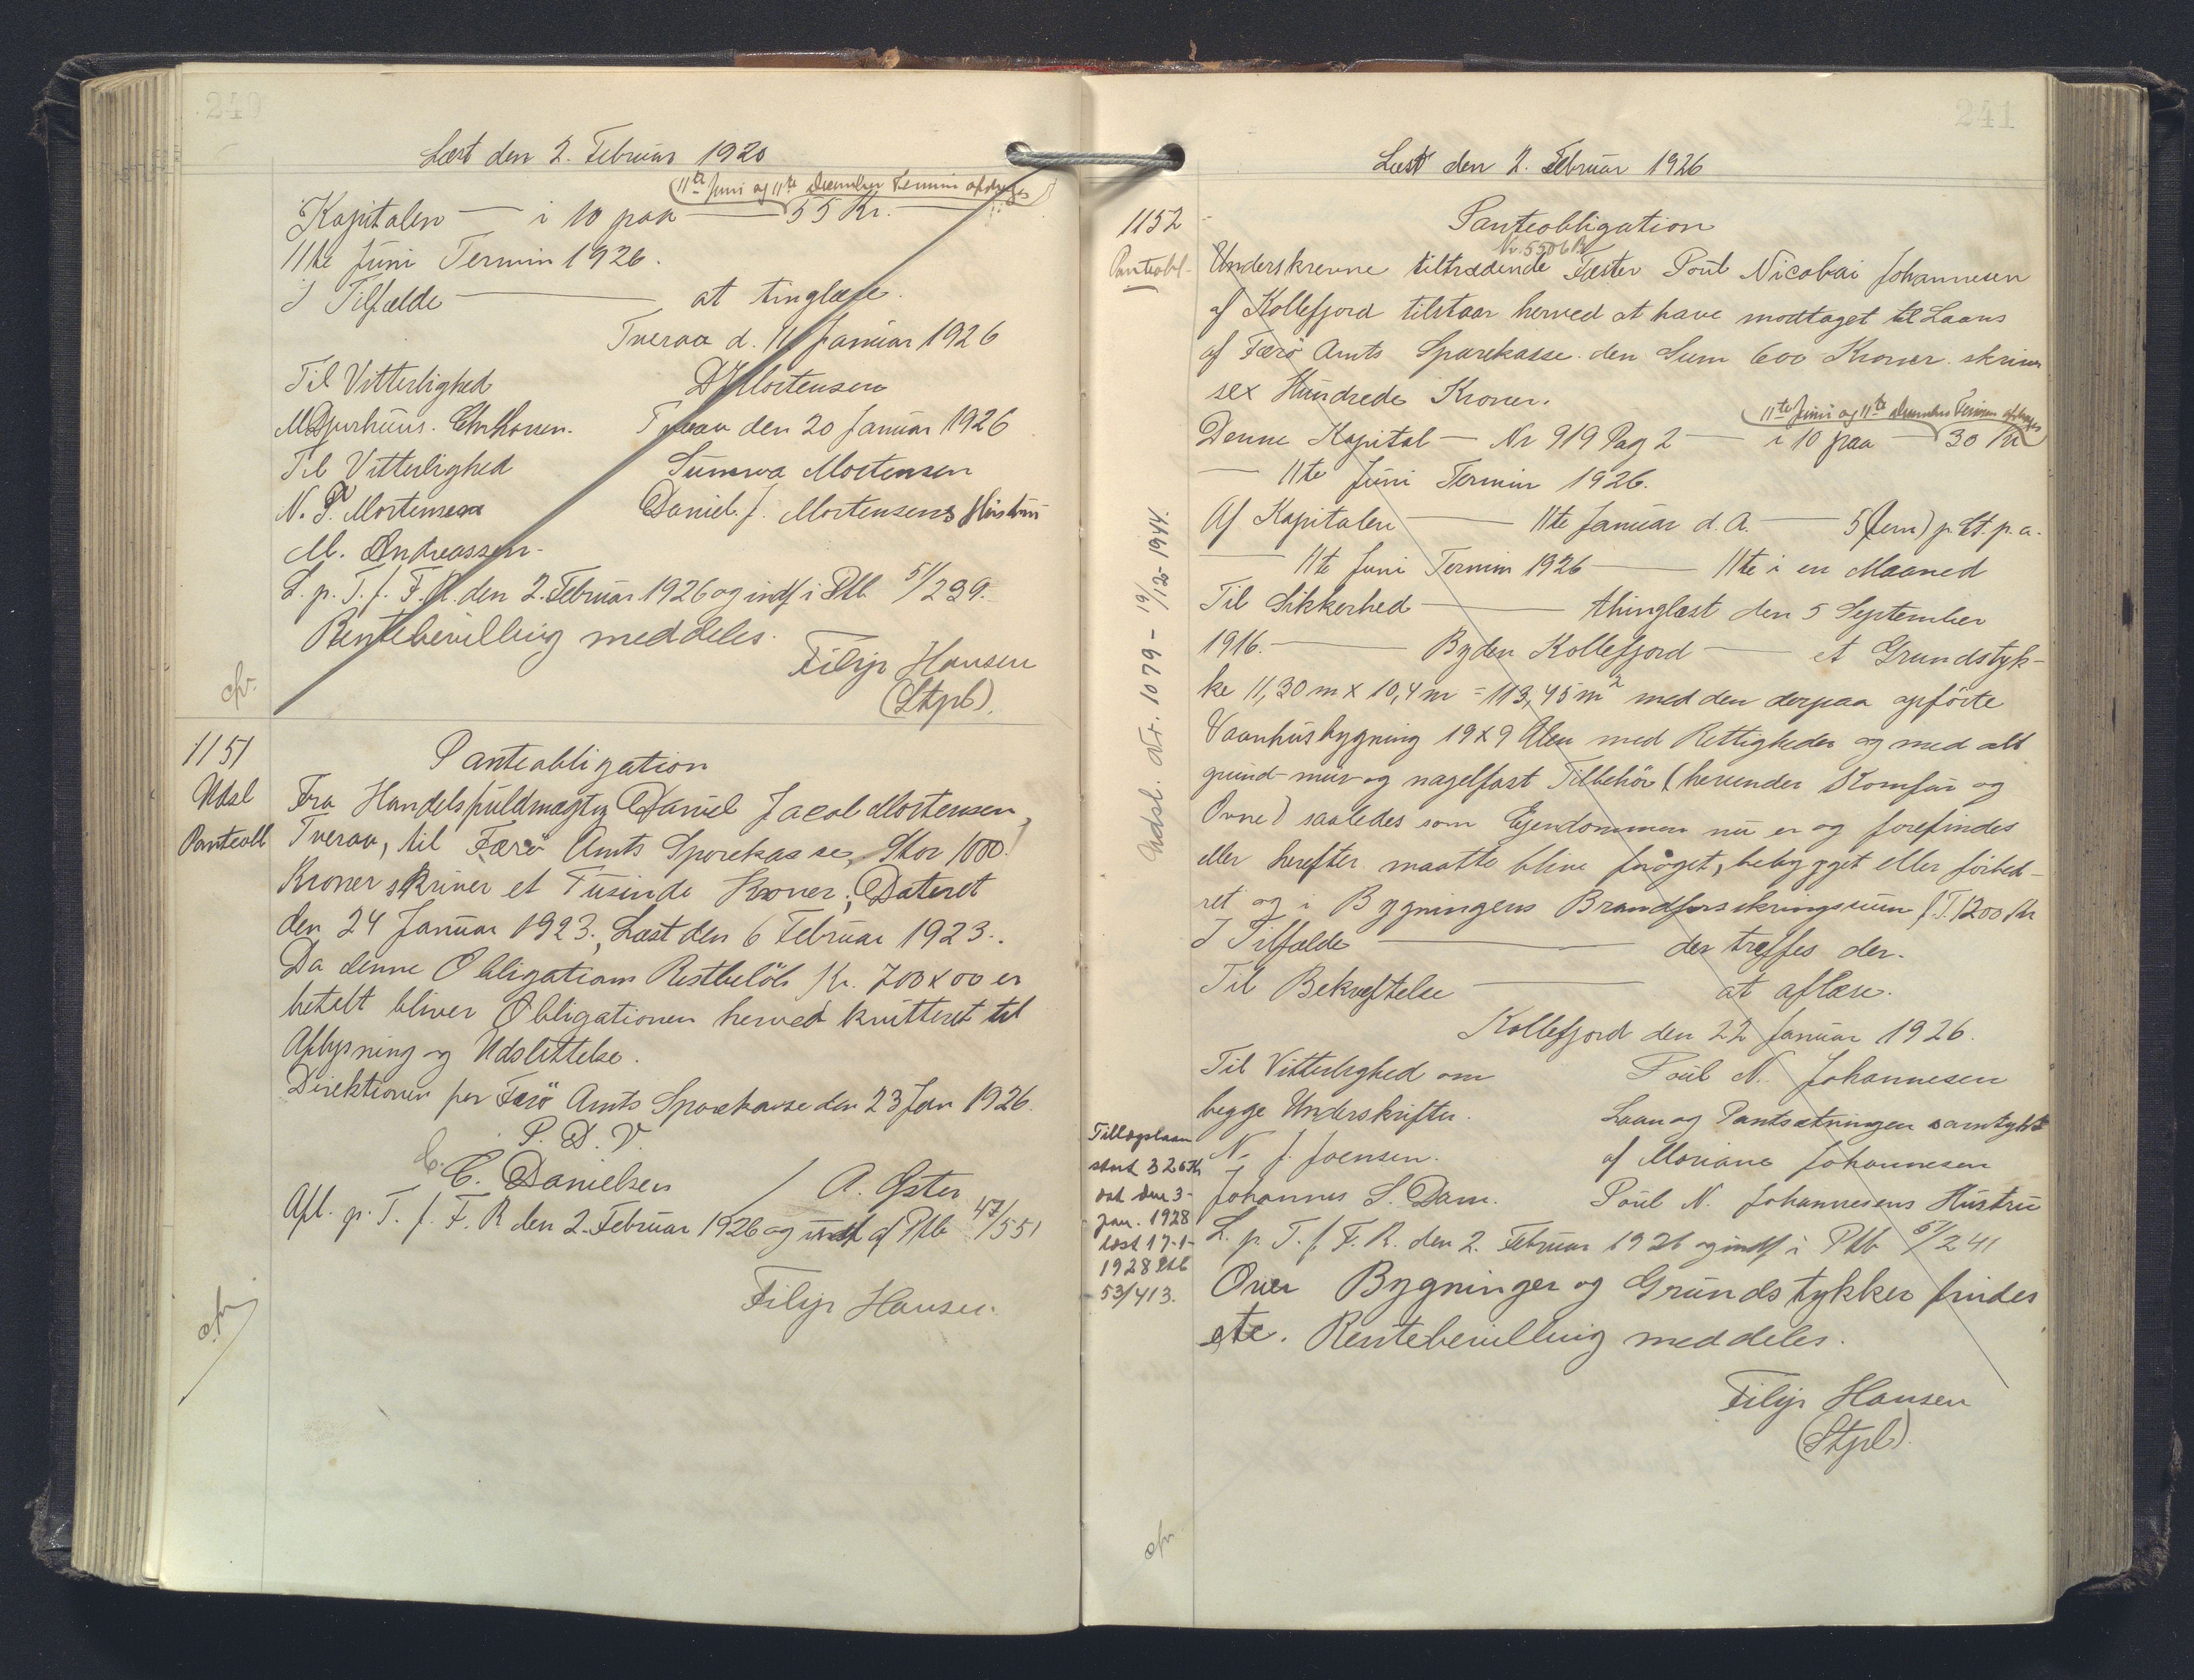 240
Læst den 2. Februar 1926
11te Juni og 11te December Termin
Kapitalen — i 10 paa — 55 Kr. —
11te Juni Termin 1926.
I Tilfælde — at tinglæse.
Tveraa d. 11 Januar 1926
Til Vitterlighed D J Mortensen
Tveraa den 20 Januar 1926
Til Vitterlighed Sunneva Mortensen
N. P. Mortensen Daniel J. Mortensens Hustru
M. Andreassen.
L. p. T. f. F. R. den 2. Februar 1926 og indf i Ptb 51/239.
Rentebevilling meddeles.
Filip Hansen
(Stpl).
1151
Udsl
Panteobl
Panteobligation
Fra Handelsfuldmægtig Daniel Jacob Mortensen,
Tveraa, til Færø Amts Sparekasse, Stor 1000
Kroner skriver et Tusinde Kroner; Dateret
den 24 Januar 1923. Læst den 6 Februar 1923.
Da denne Obligations Restbeløb Kr. 700 x 00 er
betalt bliver Obligationen herved kvitteret til
Aflysning og Udslettelse.
Direktionen for Færö Amts Sparekasse den 23 Jan 1926.
P. D. V.
C. C. Danielsen / A. Öster
Afl. p. T. f. F. R den 2. Februar 1926 og udsl af Ptb 47/551
Filip Hansen.
241
Læst den 2. Februar 1926
1152
Panteobl.
Panteobligation
Nr 5506 B
Underskrevne tiltrædende Fæster Poul Nicolai Johannesen
af Kollefjord tilstaar herved at have modtaget til Laans
af Færö Amts Sparekasse den Sum 600 Kroner skriver
sex Hundrede Kroner.
11te Juni og 11te December Termin
Denne Kapital — Nr 919 Pag 2 — i 10 paa — 30 Kr
— 11te Juni Termin 1926.
Af Kapitalen — 11te Januar d. A. — 5 (fem) p Ct. p. a.
— 11te Juni Termin 1926 — 11te i en Maaned
Til Sikkerhed — thinglæst den 5 September
1916. — Bygden Kollefjord — et Grundstyk-
ke 11,30 m x 10,4 m = 113,45 m2 med den derpaa opförte
Vaanhusbygning 19 x 9 Alen med Rettigheder og med alt
grund- mur- og nagelfast Tilbehör (herunder Komfur og
Ovne) saaledes som Ejendommen nu er og forefindes
eller herefter maatte blive foröget, bebygget eller forbed-
ret og i Bygningens Brandforsikringssum f. T. 1200 Kr
I Tilfælde — der træffes der.
Til Bekræftelse — at aflæse.
Kollefjord den 22 Januar 1926.
Til Vitterlighed om Poul N. Johannesen
begge Underskrifter. Laan og Pantsætningen samtykt
N. J. Joensen. af Mariane Johannesen
Johannes S. Dam. Poul N. Johannesens Hustru
L. p. T. f. F. R. den 2. Februar 1926 og indf i Ptb 51/241
Over Bygninger og Grundstykker findes
etc. Rentebevilling meddeles.
Filip Hansen
(Stpl).
Udsl. Nr. 1079 - 19/12-1944.
Tillægslaan
stort 326 Kr
dat den 3-
jan. 1928
læst 17-1-
1928 Ptb
53/413.